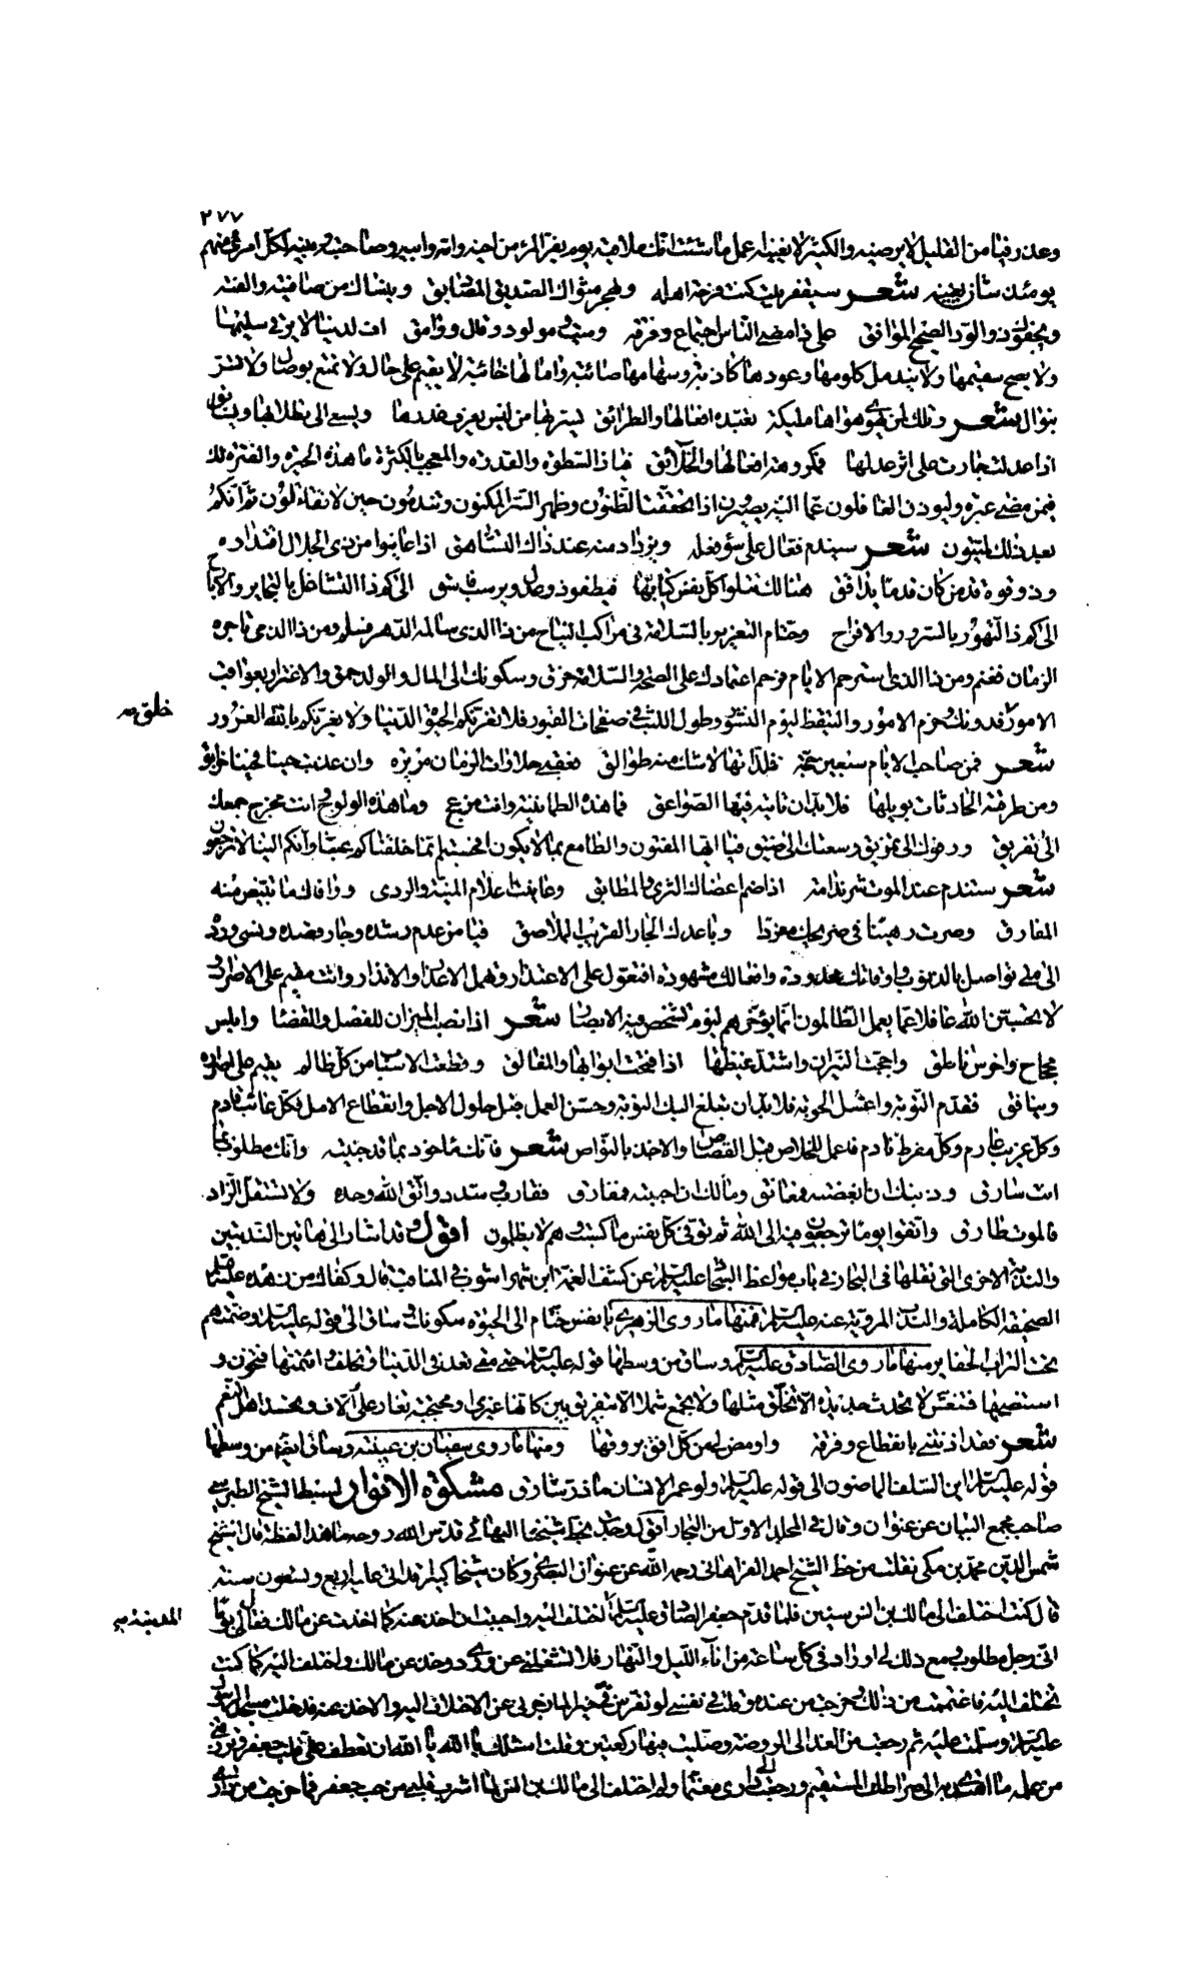 ٢٧٧
من القليل لا يرضيه والكثير لا يغنيه اعمل ما شئت انك ملاقيه يوم يفر المرء من اخيه وامه وابيه وصاحبته وبنيه لكل امرئ منهم
يومئذ شأن يغنيه شعر سيقفر بيت كنت فرحة اهله ويهجر مثواك الصديق المصادق وينساك من صافيته والفته
ويجفوك ذو الود الصحيح الموافق على ذا مضى الناس اجتماع وفرقة وميت ومولود وقال ووامق اف لدنيا لا يرقى سليمها
ولا يصح سقيمها ولا يندمل كلومها وعودها كاذبة وسهامها صائبة وآمالها خائبة لا يقيم على حال ولا تمتع بوصال ولا تسر
بنوال شعر وتلك لمن يهوى هواها مليكة تعبده افعالها والطرائق يسر بها من ليس يعرف غدرها ويسعى الى تطلابها ويسابق
اذا عدلت جارت على اثر عدلها فمكروهة افعالها والخلائق فيا ذا السطوة والقدرة والمعجب بالكثرة ما هذه الحيرة والفترة لك
فيمن مضى عبرة وليوذن الغافلون عما اليه يصيرون اذا تحققت الظنون وظهر السر المكنون وتندمون حين لا تقالون ثم انكم
بعد ذلك لميتون شعر سيندم فعال على سوء فعله ويزداد منه عند ذاك التشاهق اذا عاينوا من ذي الجلال اقتداره
وذو قوة من كان قدما يداقق هنالك تتلو كل نفس كتابها فيطفو ذو عدل ويرسب فاسق الى كم ذا التشاغل بالتجاير والارباح
الى كم ذا التهور بالسرور والافراح وحتام التغرير بالسلامة في مراكب النياح من ذا الذي سالمه الدهر فسلم ومن ذا الذي تاجره
الزمان فغنم ومن ذا الذي استرحم الايام فرحم اعتمادك على الصحة والسلامة خرق وسكونك الى المال والولد حمق والاغترار بعواقب
الامور خلق فدونك وحزم الامور والتيقظ ليوم النشور وطول اللبث في صفحات القبور فلا تغرنكم الحيوة الدنيا ولا يغرنكم بالله الغرور
شعر فمن صاحب الايام سبعين حجة فلذاتها لا شك منه طوالق فعقبى حلاوات الزمان مريرة وان عذبت حينا فحينا خرابق
ومن طرقته الحادثات بويلها فلا بد ان تأتيه فيها الصواعق فما هذه الطمأنينة وانت مزعج وما هذه الولوج وانت مخرج جمعك
الى تفريق ووفرك الى تمزيق وسعتك الى ضيق فيا ايها المفتون والطامع بما لا يكون افحسبتم انما خلقناكم عبثا وانكم الينا لا ترجعون
شعر ستندم عند الموت شر ندامة اذا ضم اعضاك الثرى المطابق وعاينت اعلام المنية والردى ووافاك ما تبيض منه
المفارق وصرت رهينا في ضريحك مفردا وباعدك الجار القريب الملاصق فيا من عدم رشده وجار قصده ونسى ورده
الى متى تواصل بالذنوب واوقاتك محدودة وافعالك مشهودة افتعول على الاعتذار وتهمل الاعذار والانذار وانت مقيم على الاصرار
لا تحسبن الله غافلا عما يعمل الظالمون انما يؤخرهم ليوم تشخص فيه الابصار شعر اذا نصب الميزان للفصل والقضاء وابلس
محجاج واخرس ناطق واججت النيران واشتد غيظها اذا فتحت ابوابها والمغالق وقطعت الاسباب من كل ظالم يقيم على اصراره
وينافق فقدم التوبة واغسل الحوبة فلا بد ان تبلغ اليك النوبة وحسن العمل قبل حلول الاجل وانقطاع الامل فكل غائب قادم
وكل غريب غارم وكل مفرط نادم فاعمل للخلاص قبل القصاص والاخذ بالنواص شعر فانك مأخوذ بما قد جنيته وانك مطلوب بما
انت سارق وذنبك ان ابغضته فمعانق ومالك ان احببته فمفارق فقارب وسدد واتق الله وحده ولا تستقل الزاد
فالموت طارق واتقوا يوما ترجعون فيه الى الله ثم توفى كل نفس ما كسبت وهم لا يظلمون اقول قد اشار الى هاتين الندبتين
والندبة الاخرى التي نقلها في البحار في باب مواعظ السجاد عليه السلام عن كشف الغمة ابن شهراشوب في المناقب قال وكفاك من زهده عليه السلام
الصحيفة الكاملة والندب المروية عنه عليه السلام فمنها ما روى الزهري يا نفس حتام الى الحيوة سكونك وساق الى قوله عليه السلام وضمتهم
تحت التراب الحفاير ومنها ما روى الصادق عليه السلام وساق من وسطها قوله عليه السلام حتى متى تعدني الدنيا وتخلف وائتمنها فتخون و
استنصحها فتغش لا تحدث جديدة الا تخلق مثلها ولا تجمع شملا الا بتفريق بين كانها غيرى او محتجبة تغار على الآلاف وتحسد اهل النعم
شعر فقد اذنتني بانقطاع وفرقة واومض لي من كل افق بروقها ومنها ما روى سفيان بن عيينة وساق ايضا من وسطها
قوله عليه السلام اين السلف الماضون الى قوله عليه السلام ولو عمر الانسان ما ذر شارق مشكوة الانوار لسبط الشيخ الطبرسي
صاحب مجمع البيان عن عنوان وقال في المجلد الاول من البحار اقول وجدت بخط شيخنا البهائي قدس الله روحه ما هذا لفظه قال الشيخ
شمس الدين محمد بن مكي نقلت من خط الشيخ احمد الفراهاني رحمه الله عن عنوان البصري وكان شيخا كبيرا قد اتى عليه اربع وتسعون سنة
قال كنت اختلف الى مالك بن انس سنين فلما قدم جعفر الصادق عليه السلام المدينة اختلفت اليه واحببت ان اخذ عنه كما اخذت عن مالك فقال لي يوما
اني رجل مطلوب ومع ذلك لي اوراد في كل ساعة من آناء الليل والنهار فلا تشغلني عن وردي وخذ عن مالك واختلف اليه كما كنت
تختلف اليه فاغتممت من ذلك وخرجت من عنده وقلت في نفسي لو تفرس في خيرا لما زجرني عن الاختلاف اليه والاخذ عنه فدخلت مسجد الرسول
عليه السلام وسلمت عليه ثم رجعت من الغد الى الروضة وصليت فيها ركعتين وقلت اسئلك يا الله يا الله ان تعطف علي قلب جعفر وترزقني
من علمه ما اهتدي به الى صراطك المستقيم ورجعت الى داري مغتما ولم اختلف الى مالك بن انس لما اشرب قلبي من حب جعفر فما خرجت من داري